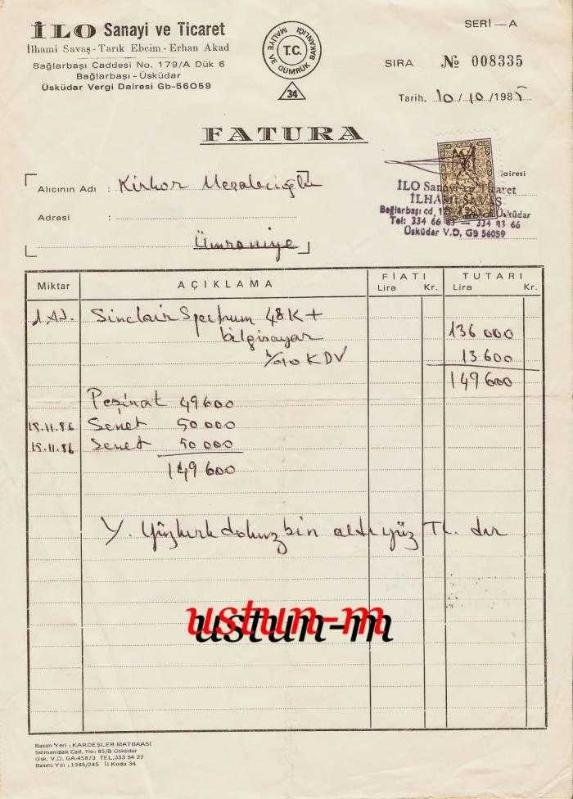 İLO Sanayi ve Ticaret
İlhami Savaş - Tarık Ebcim - Erhan Akad
Bağlarbaşı Caddesi No. 179/A Dük 6
Bağlarbaşı - Üsküdar
Üsküdar Vergi Dairesi Gb-56059
T.C.
MALİYE VE GÜMRÜK BAKANLIĞI
34
SERİ — A
SIRA № 008335
Tarih, 10/10/1985
FATURA
Alıcının Adı : Kirkor
Adresi :
Ümraniye
İLO Sanayi ve Ticaret
İLHAMİ SAVAŞ
Bağlarbaşı cd, Üsküdar
Tel: 334 66 — 334 93 66
Üsküdar V.D, GB 56059
Miktar AÇIKLAMA FİATI TUTARI
Lira Kr. Lira Kr.
1 Ad. Sinclair Spectrum 48K + 136 000
bilgisayar
%10 KDV 13 600
149 600
Peşinat 49600
15.11.86 Senet 50 000
Senet 50 000
149 600
Y. Yüzkırkdokuzbin altıyüz TL. dır
ustun-m
Basım Yeri : KARDEŞLER MATBAASI
Selmanipak Cad. No: 85/B Üsküdar
Üsk. V.D. GA.4587/3 TEL.333 54 22
Basım Yılı : 1985/245 İl Kodu 34